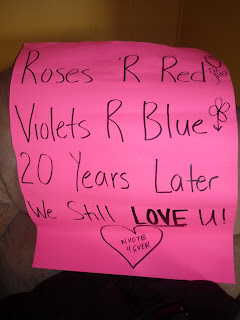 Roses 'R Red
Violets R Blue
20 Years Later
We Still LOVE U!
NKOTB
4 EVER